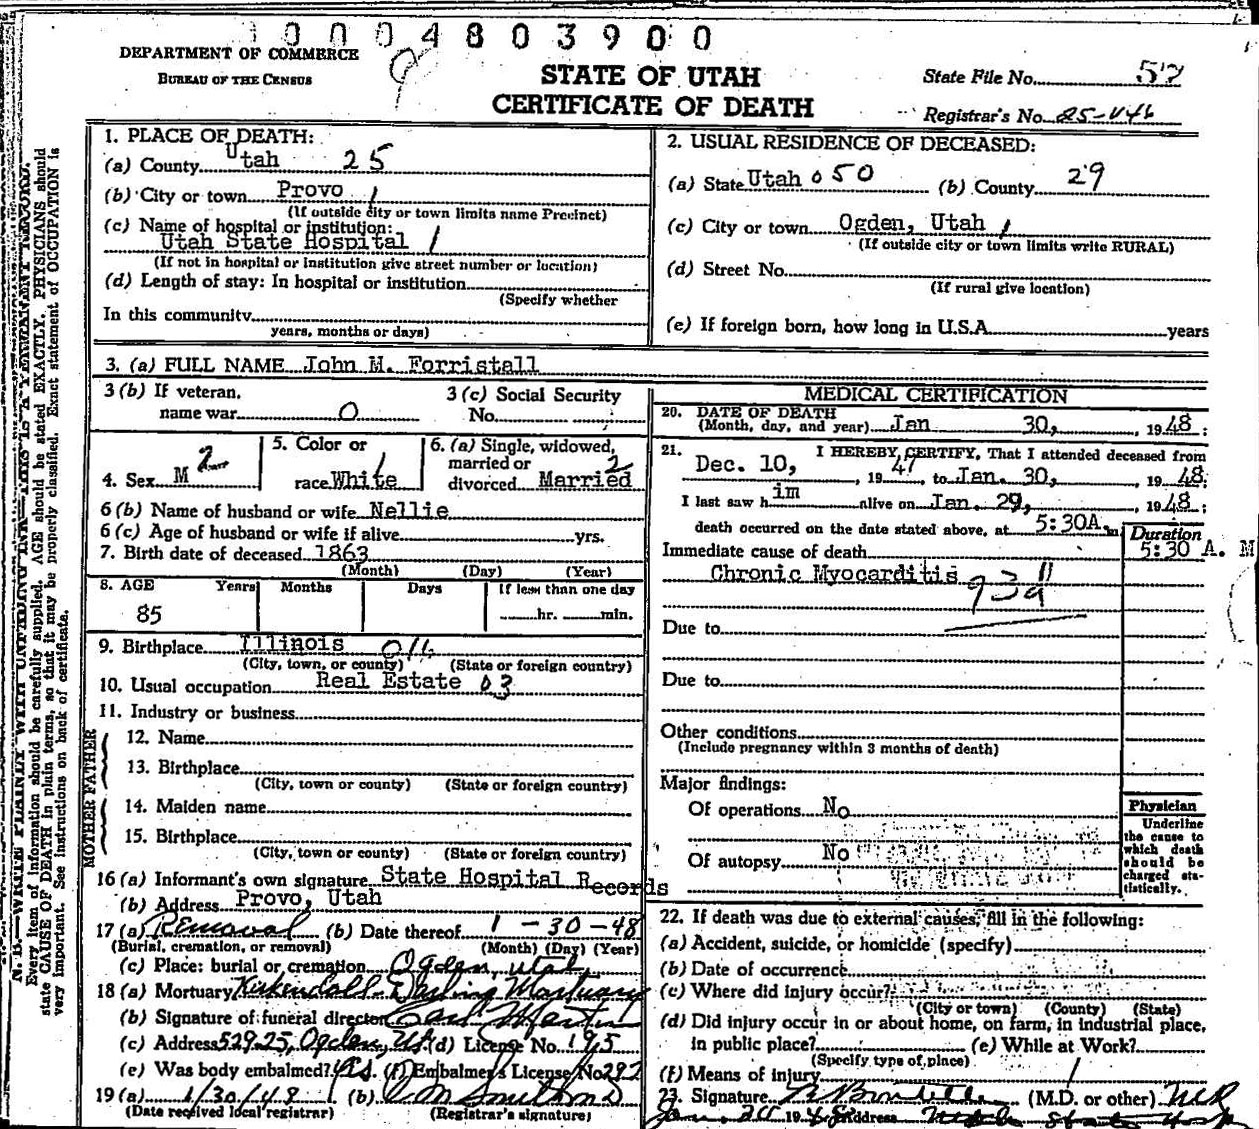 0004803900
DEPARTMENT OF COMMERCE
BUREAU OF THE CENSUS
STATE OF UTAH
CERTIFICATE OF DEATH
State File No. 52
Registrar's No. 25-
1. PLACE OF DEATH:
(a) County Utah 25
(b) City or town Provo 1
(If outside city or town limits name Precinct)
(c) Name of hospital or institution:
Utah State Hospital 1
(If not in hospital or institution give street number or location)
(d) Length of stay: In hospital or institution
(Specify whether
In this community
years, months or days)
2. USUAL RESIDENCE OF DECEASED:
(a) State Utah 050 (b) County 29
(c) City or town Ogden, Utah 1
(If outside city or town limits write RURAL)
(d) Street No.
(If rural give location)
(e) If foreign born, how long in U.S.A. years
3. (a) FULL NAME John M. Forristall
3 (b) If veteran,
name war 0
3 (c) Social Security
No.
4. Sex M 2
5. Color or
race White 1
6. (a) Single, widowed,
married or
divorced Married 2
6 (b) Name of husband or wife Nellie
6 (c) Age of husband or wife if alive yrs.
7. Birth date of deceased 1863
(Month) (Day) (Year)
8. AGE Years Months Days If less than one day
85 hr. min.
9. Birthplace Illinois 011
(City, town, or county) (State or foreign country)
10. Usual occupation Real Estate 03
11. Industry or business
FATHER
12. Name
13. Birthplace
(City, town or county) (State or foreign country)
MOTHER
14. Maiden name
15. Birthplace
(City, town or county) (State or foreign country)
16 (a) Informant's own signature State Hospital Records
(b) Address Provo, Utah
17 (a) Removal (b) Date thereof 1-30-48
(Burial, cremation, or removal) (Month) (Day) (Year)
(c) Place: burial or cremation Ogden, Utah
18 (a) Mortuary Kirkendall-Darling Mortuary
(b) Signature of funeral director Earl Martin
(c) Address 529-25, Ogden, Ut (d) License No. 195
(e) Was body embalmed? yes. (f) Embalmer's License No 292
19 (a) 1/30/48 (b)
(Date received local registrar) (Registrar's signature)
MEDICAL CERTIFICATION
20. DATE OF DEATH
(Month, day, and year) Jan 30, 1948;
21. I HEREBY CERTIFY, That I attended deceased from
Dec. 10, 1947 to Jan. 30, 1948;
I last saw him alive on Jan. 29, 1948;
death occurred on the date stated above, at 5:30A. m
Duration
5:30 A. M
Immediate cause of death
Chronic Myocarditis 93d
Due to
Due to
Other conditions
(Include pregnancy within 3 months of death)
Major findings:
Of operations No
Of autopsy No
Physician
Underline
the cause to
which death
should be
charged sta-
tistically.
22. If death was due to external causes, fill in the following:
(a) Accident, suicide, or homicide (specify)
(b) Date of occurrence
(c) Where did injury occur?
(City or town) (County) (State)
(d) Did injury occur in or about home, on farm, in industrial place,
in public place? (e) While at Work?
(Specify type of place)
(f) Means of injury
23. Signature (M.D. or other) MD
Jan. 1948 Address Utah State Hosp
N. B.—WRITE PLAINLY WITH UNFADING INK—THIS IS A PERMANENT RECORD.
Every item of information should be carefully supplied. AGE should be stated EXACTLY. PHYSICIANS should
state CAUSE OF DEATH in plain terms, so that it may be properly classified. Exact statement of OCCUPATION is
very important. See instructions on back of certificate.